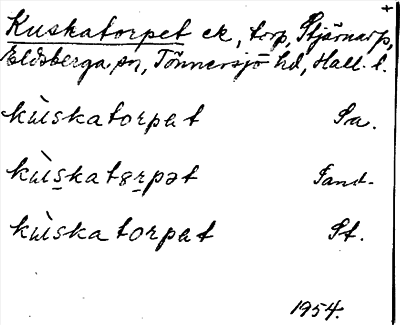 +
Kuskatorpet ek, torp, Stjärnarp,
Eldsberga sn, Tönnersjö hd, Hall. l.
kùskatorpət Sa.
kùskatɞrpət Sand.
kùskatorpət St.
1954.